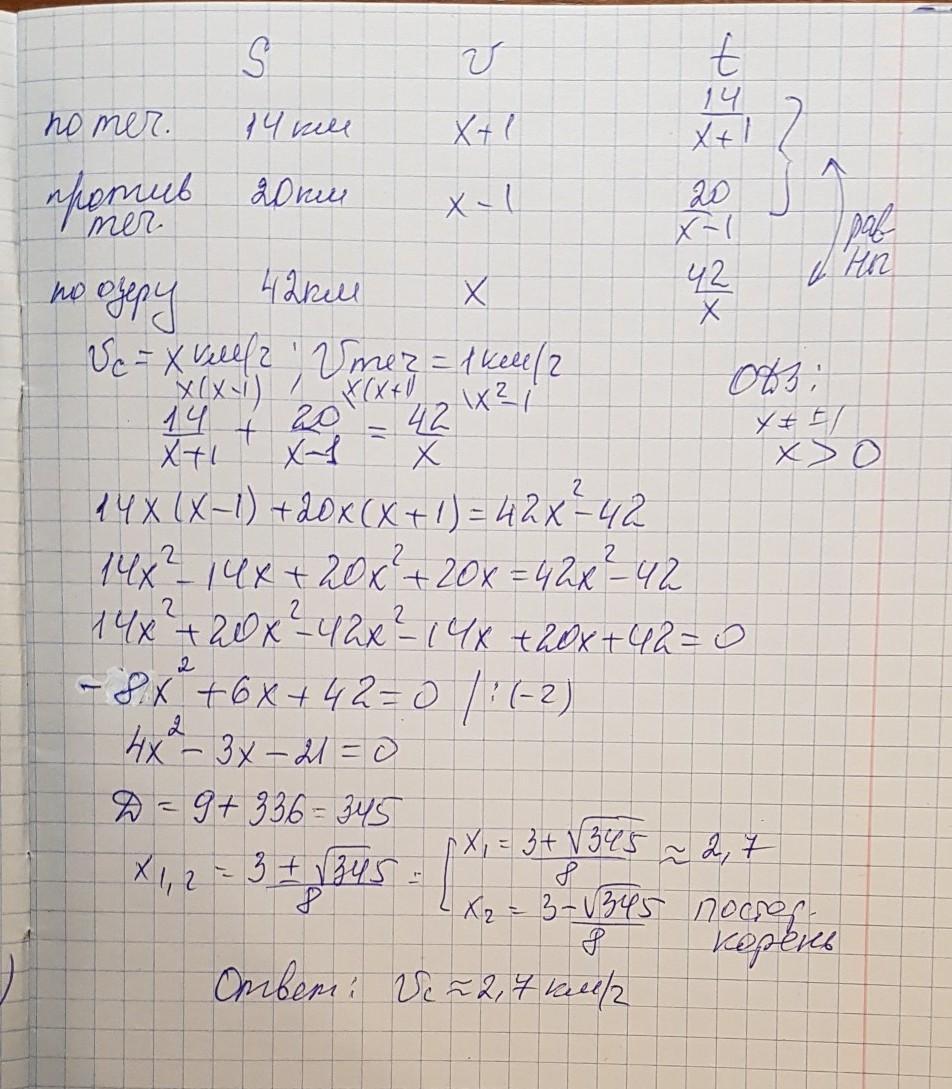 S v t
по теч. 14 км x+1 14/(x+1)
против теч. 20 км x-1 20/(x-1)
равны
по озеру 42 км x 42/x
Vc = x км/ч ; Vтеч = 1 км/ч
ОДЗ:
x ≠ ±1
x > 0
\x(x-1) \x(x+1) \x²-1
14/(x+1) + 20/(x-1) = 42/x
14x(x-1)+20x(x+1)=42x²-42
14x²-14x+20x²+20x=42x²-42
14x²+20x²-42x²-14x+20x+42=0
-8x²+6x+42=0 /:(-2)
4x²-3x-21=0
D = 9+336=345
x1,2 = (3±√345)/8 = [ x1 = (3+√345)/8 ≈ 2,7
x2 = (3-√345)/8 постор. корень
Ответ: Vc ≈ 2,7 км/ч